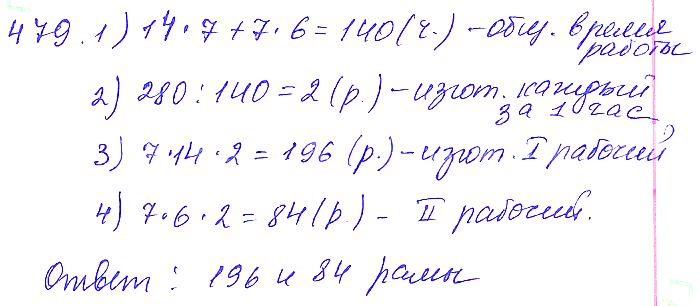 479. 1) 14·7+7·6=140(ч.) – общ. время
работы
2) 280:140=2(р.) – изгот. каждый
за 1 час
3) 7·14·2=196 (р.) – изгот. I рабочий,
4) 7·6·2=84(р.) – II рабочий.
Ответ: 196 и 84 рамы